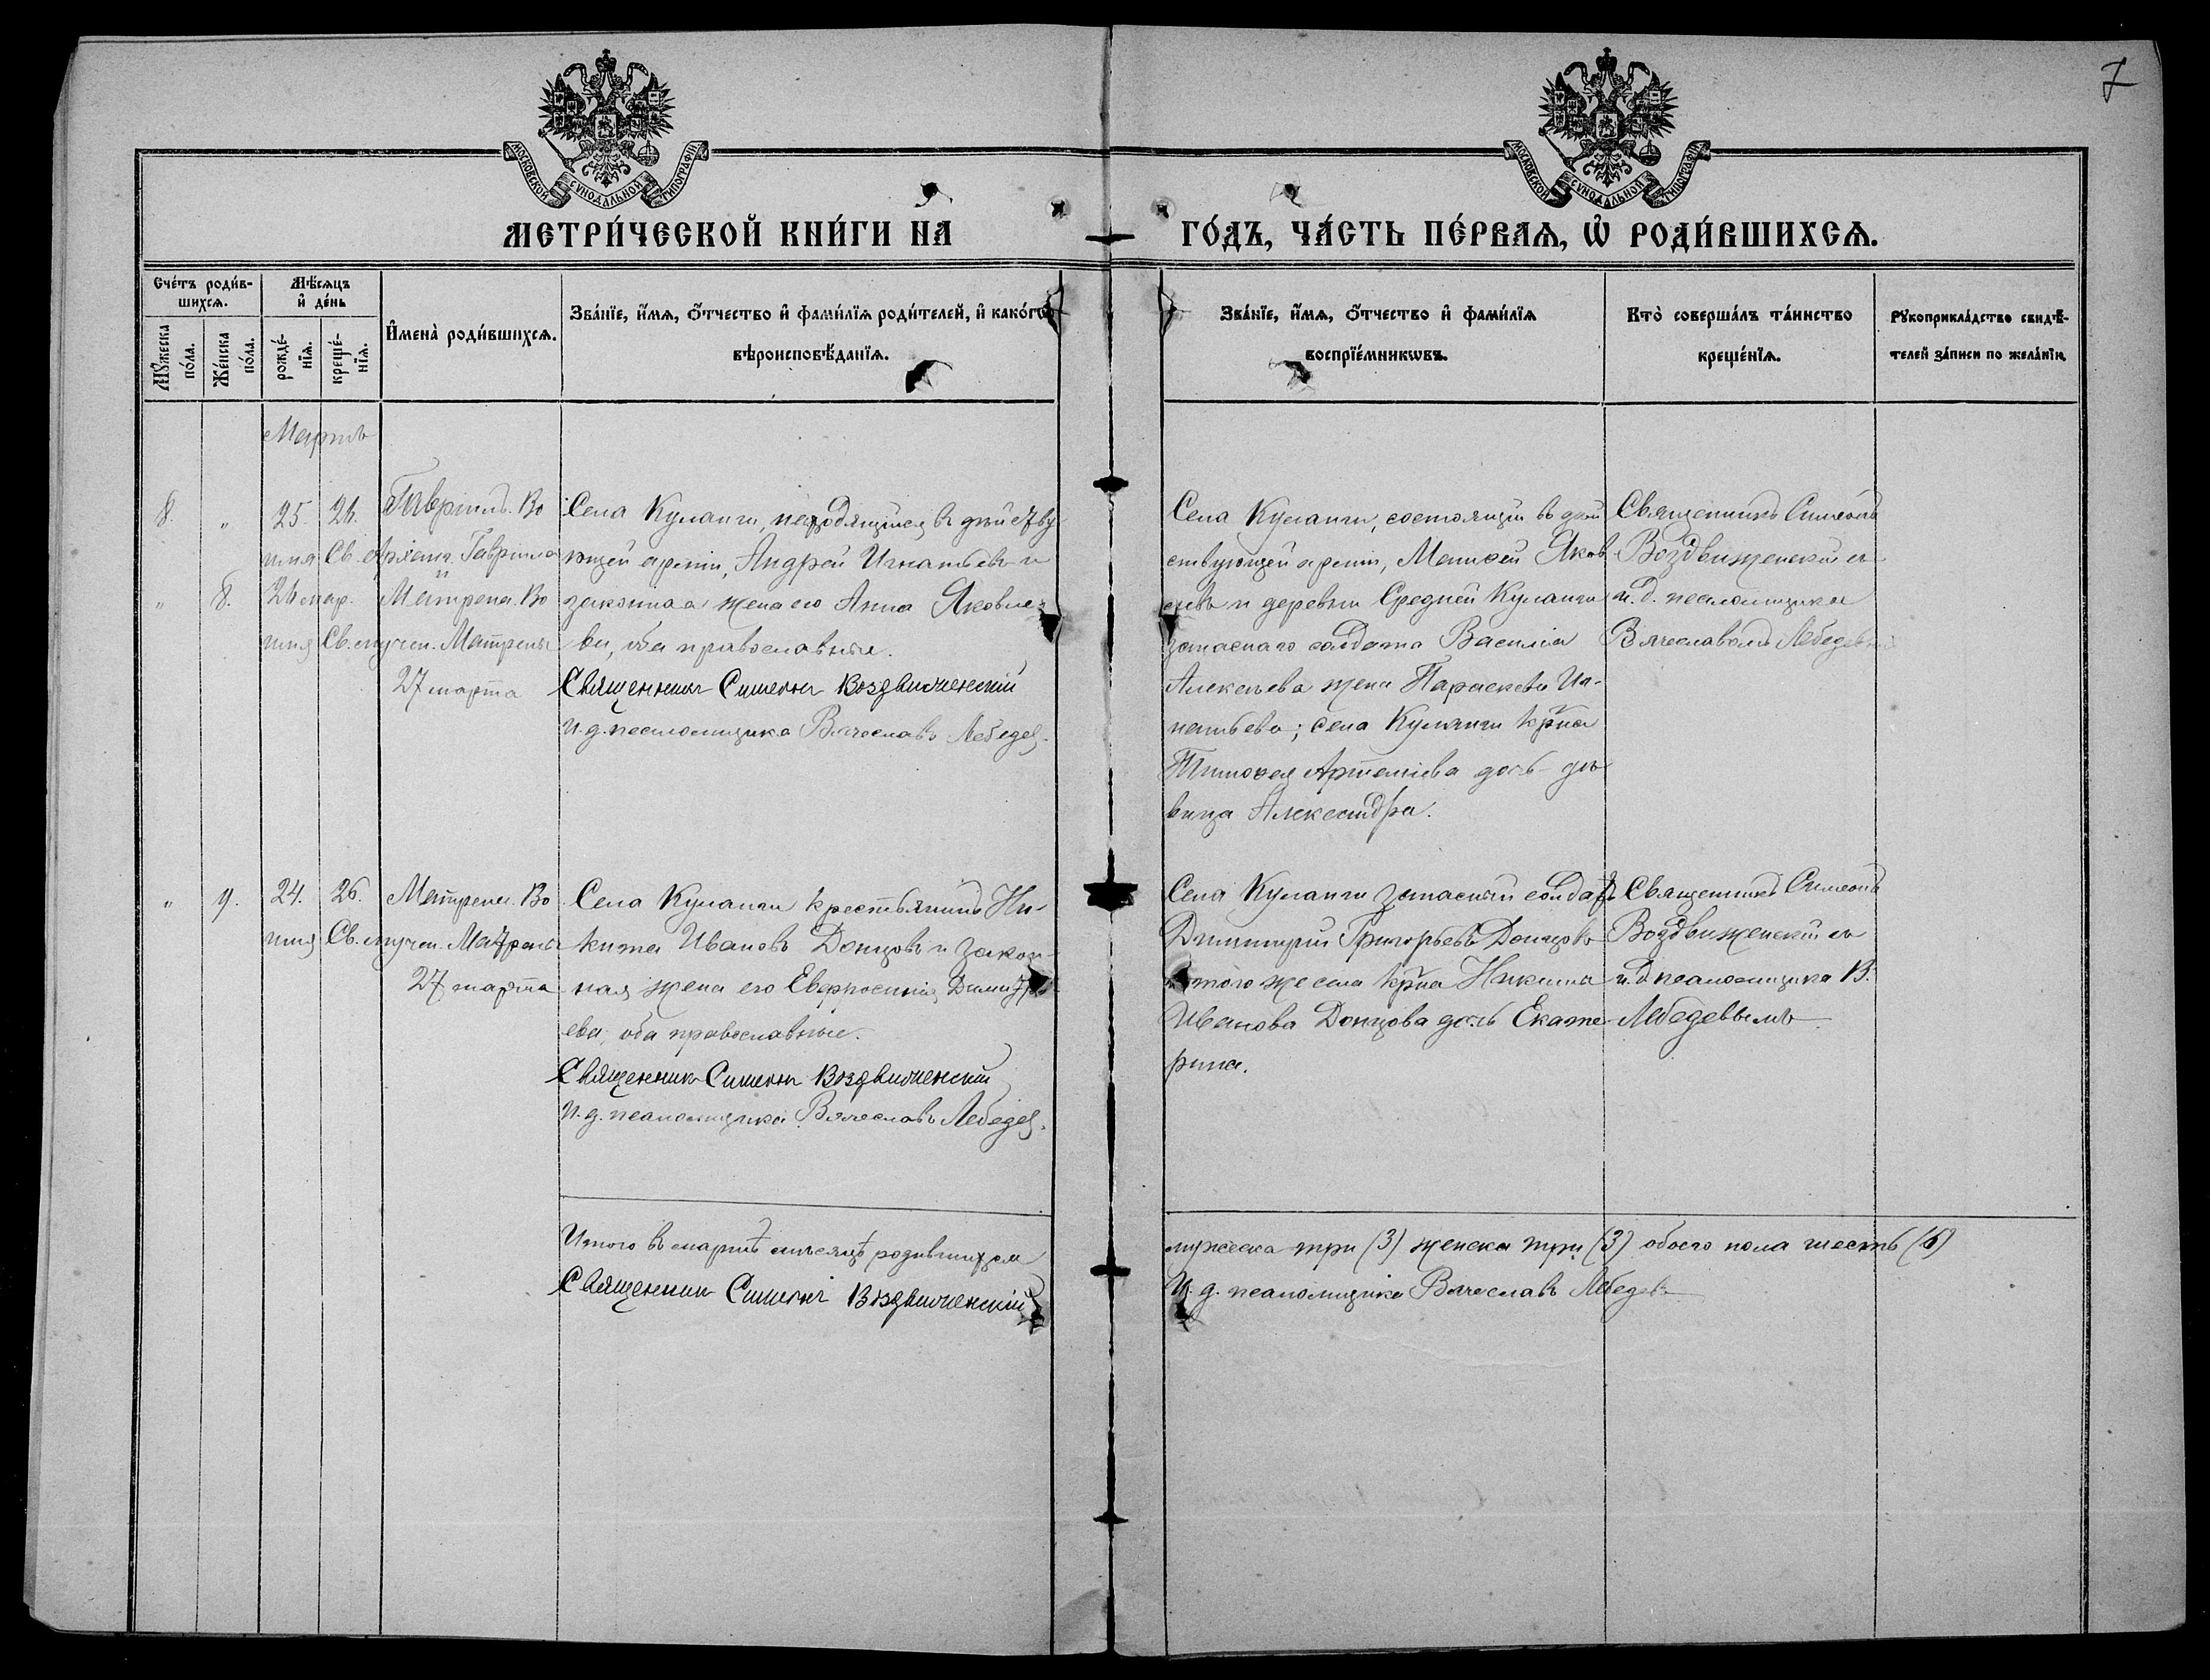 7
МОСКОВСКОЙ СѴНОДАЛЬНОЙ ТИПОГРАФІИ
МОСКОВСКОЙ СѴНОДАЛЬНОЙ ТИПОГРАФІИ
МЕТРИ́ЧЕСКОЙ КНИ́ГИ НА
ГО́ДЪ, ЧА́СТЬ ПЕ́РВАѦ, Ѡ҆ РОДИ́ВШИХСѦ.
Сче́тъ роди́в-
шихсѧ.
Мꙋ́жеска по́ла.
Же́нска по́ла.
Мѣ́сѧцъ
и҆ де́нь
рожде́-
нїѧ.
креще́-
нїѧ.
И҆мена̀ роди́вшихсѧ.
Зва́нїе, и҆́мѧ, ѻ҆́тчество и҆ фами́лїѧ роди́телей, и҆ како́гѡ
вѣроисповѣ́данїѧ.
Зва́нїе, и҆́мѧ, ѻ҆́тчество и҆ фами́лїѧ
воспрїе́мникѡвъ.
Кто̀ соверша́лъ та́инство
креще́нїѧ.
Рꙋкоприкла́дство свидѣ́-
телей за́писи по жела́нїю.
Мартъ
8. " 25. 26. Гавріилъ. Во
имя Св. Архан. Гавріила
" 8. 26 мар. Матрена. Во
имя Св. мучен. Матрены
27 марта
Села Куланги, находящійся въ дѣйству
ющей арміи, Андрей Игнатьевъ и
законная жена его Анна Яковле-
ва, оба православные.
Священникъ Симеонъ Воздвиженскій
И. д. псаломщика Вячеславъ Лебедев.
Села Куланги, состоящій въ дѣй
ствующей арміи, Матѳей Яков
левъ и деревни Средней Куланги
запаснаго солдата Василія
Алексѣева жена Параскева Иг-
натьева; села Куланги кр-на
Тимоѳея Артемьева дочь дѣ
вица Александра.
Священникъ Симеонъ
Воздвиженскій съ
и. д. псаломщика
Вячеславомъ Лебедевымъ
" 9. 24. 26. Матрена. Во
имя Св. мучен. Матрены
27 марта
Села Куланги крестьянинъ Ни-
кита Ивановъ Донцовъ и закон-
ная жена его Евфросинія Димитрі
ева, оба православные.
Священникъ Симеонъ Воздвиженскій
И. д. псаломщика Вячеславъ Лебедев.
Села Куланги запасный солдатъ
Димитрій Григорьевъ Донцовъ
и того же села кр-на Никита
Иванова Донцова дочь Екате-
рина.
Священникъ Симеонъ
Воздвиженскій съ
и. д. псаломщика В.
Лебедевымъ
Итого въ мартѣ мѣсяцѣ родившихся
мужеска три (3) женска три (3) обоего пола шесть (6)
Священникъ Симеонъ Воздвиженскій
И. д. псаломщика Вячеславъ Лебедевъ